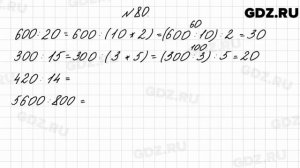 GDZ.RU
№ 80
60
600:20 = 600 : (10 * 2) = (600:10) : 2 = 30
100
300 : 15 = 300 : (3 * 5) = (300:3) : 5 = 20
420 : 14 =
5600 : 800 =
GDZ.RU